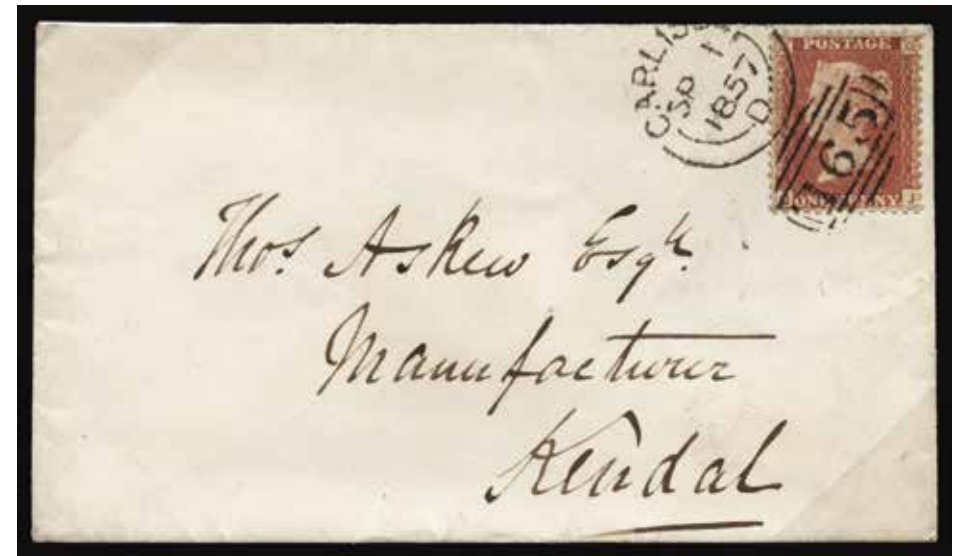 CARLISLE
SP 1
1857
D
POSTAGE
165
ONE PENNY
Thos. Askew Esqr.
Manufacturer
Kendal